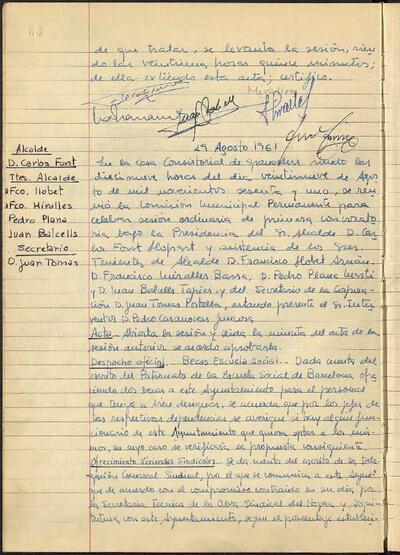 de que tratar, se levanta la sesión, sien-
do las veintiuna horas quince minutos;
de ella extiendo esta acta; certifico.
29 Agosto 1961
Alcalde
D. Carlos Font
Ttes. Alcalde
Fco. Llobet
Fco. Miralles
Pedro Plana
Juan Balcells
Secretario
D. Juan Tomas
En la Casa Consistorial de Granollers siendo las
diecinueve horas del día veintinueve de Agos-
to de mil novecientos sesenta y uno, se reu-
nió la Comisión Municipal Permanente para
celebrar sesión ordinaria de primera convocato-
ria bajo la Presidencia del Sr. Alcalde D. Car-
los Font Llopart y asistencia de los Sres.
Teniente de Alcalde D. Francisco Llobet
D. Francisco Miralles Bassa, D. Pedro Plana
y D. Juan Balcells Tapies y del Secretario de la Corpora-
ción D. Juan Tomas Potella, estando presente el Sr. Inter-
ventor D. Pedro Casanovas Juncosa
Acta.- Abierta la sesión y leida la minuta del acta de la
sesión anterior se acordó aprobarla.
Despacho oficial.- Becas Escuela Social.- Dada cuenta del
escrito del Patronato de la Escuela Social de Barcelona ofre-
ciendo dos becas a este Ayuntamiento para el personal
que tenga a bien designar, se acuerda que por los jefes de
las respectivas dependencias se averigue si hay algun fun-
cionario de este Ayuntamiento que quiera optar a los mis-
mos, en cuyo caso se verificaría la propuesta consiguiente.
Ofrecimiento Viviendas Sindicales.- Se da cuenta del escrito de la Dele-
gación Comarcal Sindical, por el que se comunica a este Ayunt.
que de acuerdo con el compromiso contraido en su día por
la Secretaria Tecnica de la Obra Sindical del Hogar y Arqui-
tectura, con este Ayuntamiento, segun el porcentage estableci-